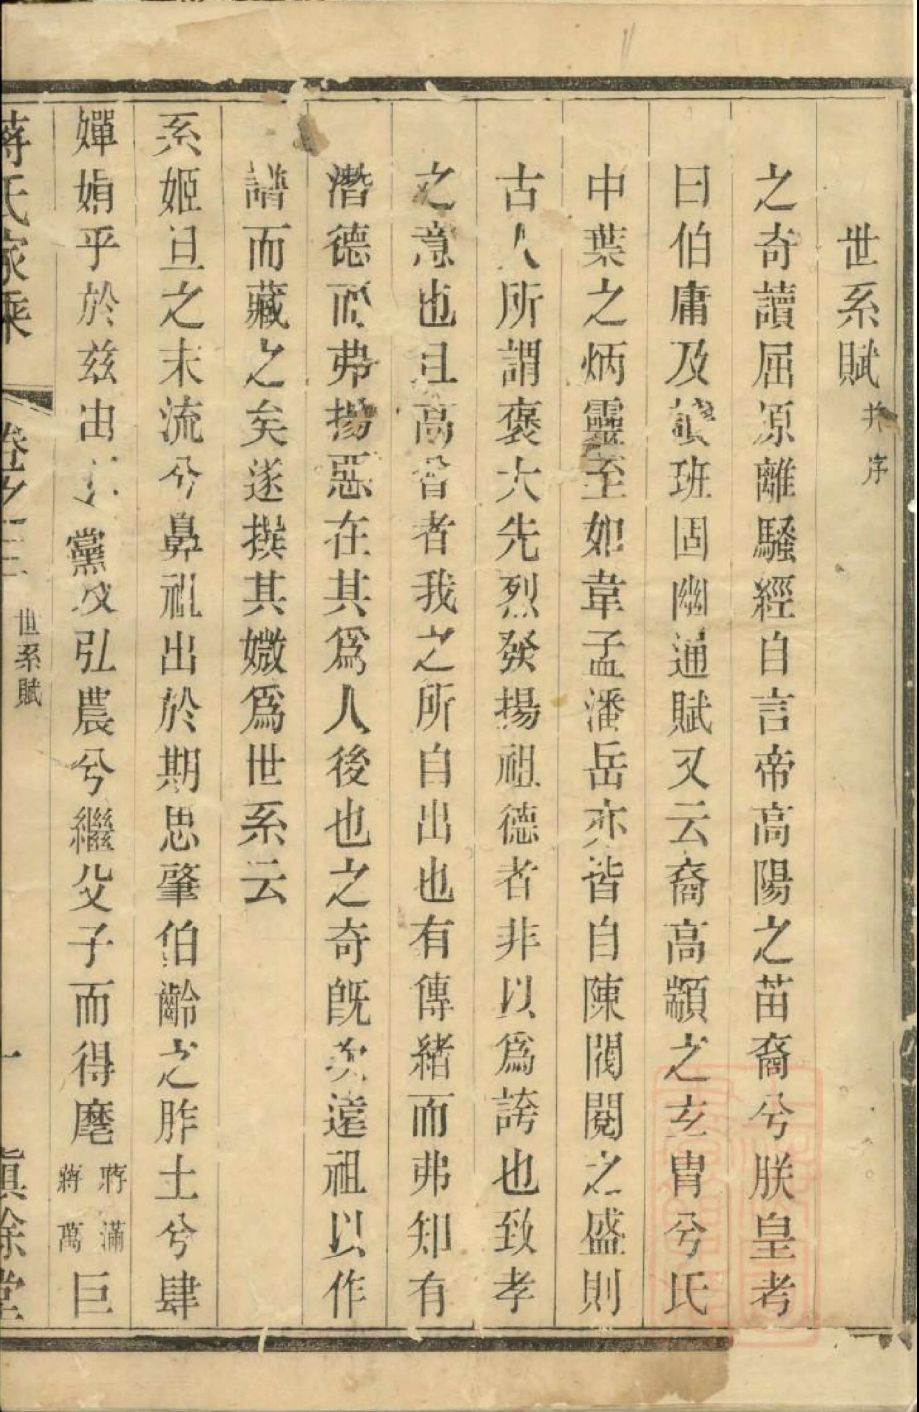 世系賦并序
之奇讀屈原離騷經自言帝高陽之苗裔兮朕皇考
曰伯庸及讀班固幽通賦又云裔高顓之玄胄兮氏
中葉之炳靈至如韋孟潘岳亦皆自陳閥閱之盛則
古人所謂褒大先烈發揚祖德者非以爲誇也致孝
之意也且高曾者我之所自出也有傳緒而弗知有
潛德而弗揚惡在其爲人後也之奇既次遠祖以作
譜而藏之矣遂撰其媺爲世系云
系姬旦之末流兮鼻祖出於期思肇伯齡之胙土兮肆
嬋媚乎於兹由黨及弘農兮繼父子而得麾蔣滿蔣萬巨
蔣氏家乘 卷之二 世系賦 一 慎餘堂